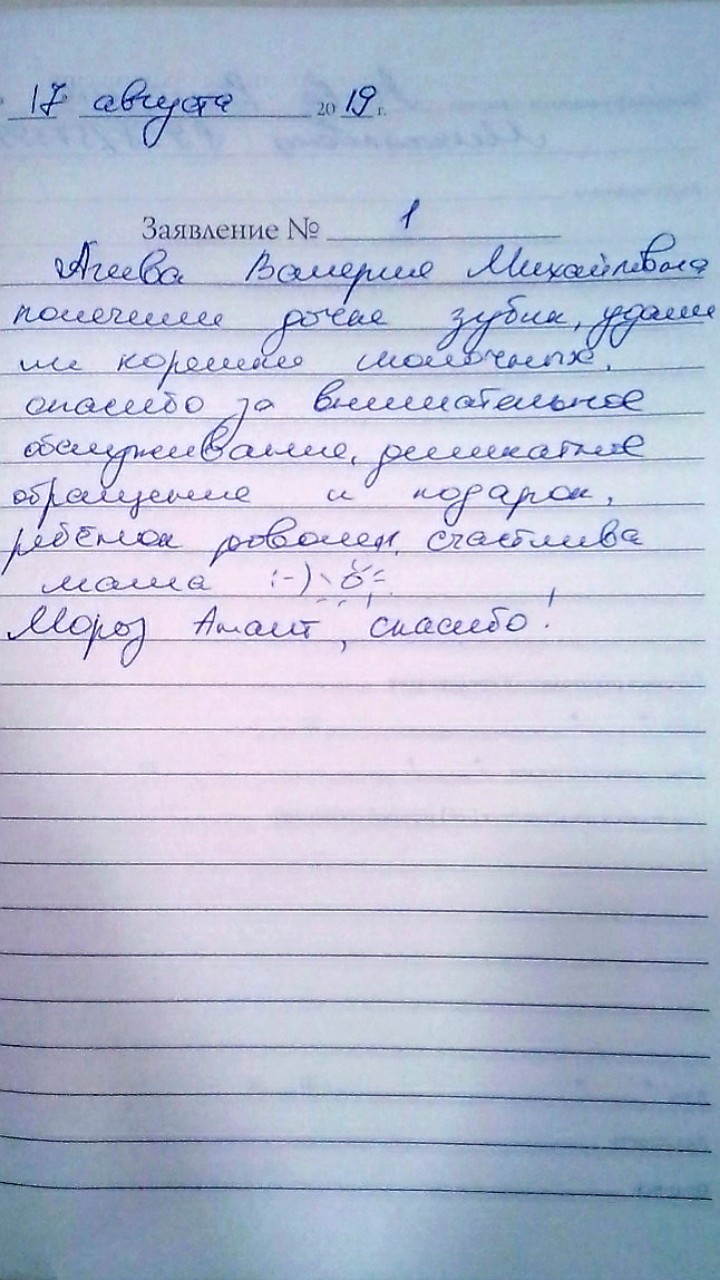 17 августа 2019 г.
Заявление № 1
Агеева Валерия Михайловна
полечили дочке зубик, удали
ли корешки молочных,
спасибо за внимательное
обслуживание, деликатное
обращение и подарок,
ребёнок доволен, счастлива
мама :-)
Мороз, спасибо!